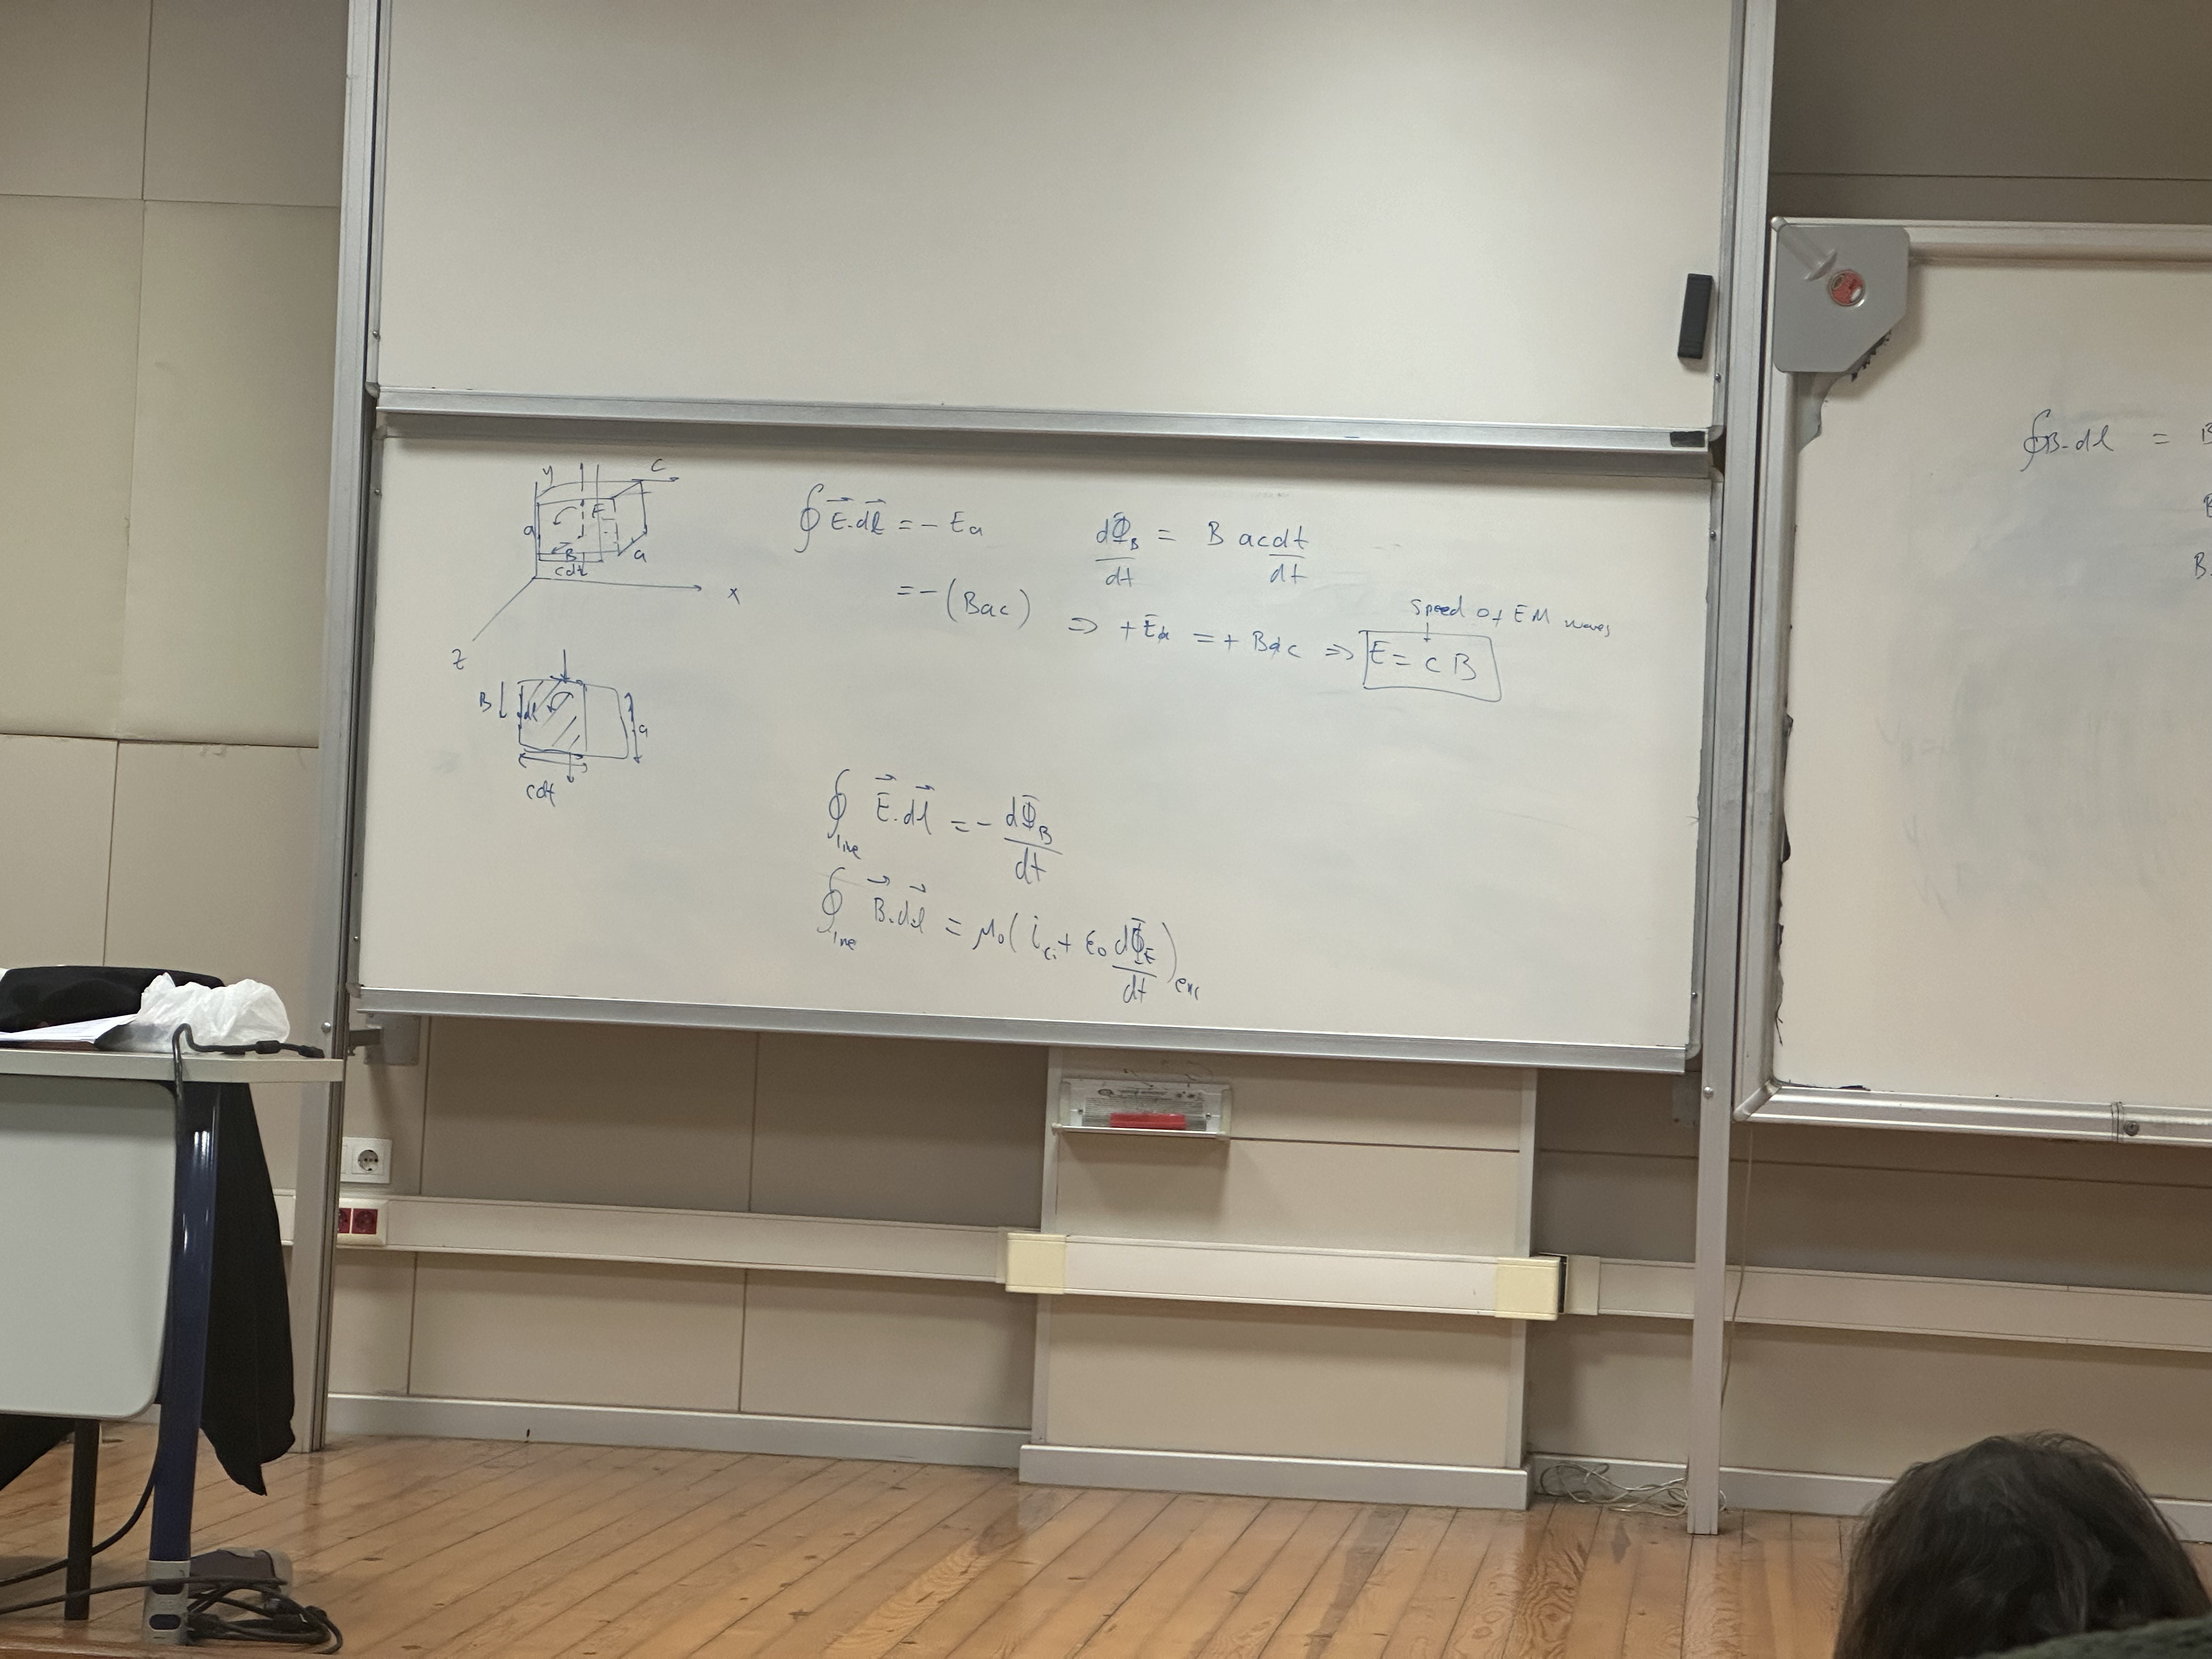 y
c
E
a
B
a
cdt
x
z
B
dl
a
cdt
∮ E⃗.dl⃗ = - Ea
= - (Bac)
dΦB/dt = B acdt/dt
⇒ + Ea = + Bac ⇒ E = c B
Speed of EM waves
∮line E⃗.dl⃗ = - dΦB/dt
∮line B⃗.dl⃗ = μ0( ic + ε0 dΦE/dt )enc
∮B.dl = B
B